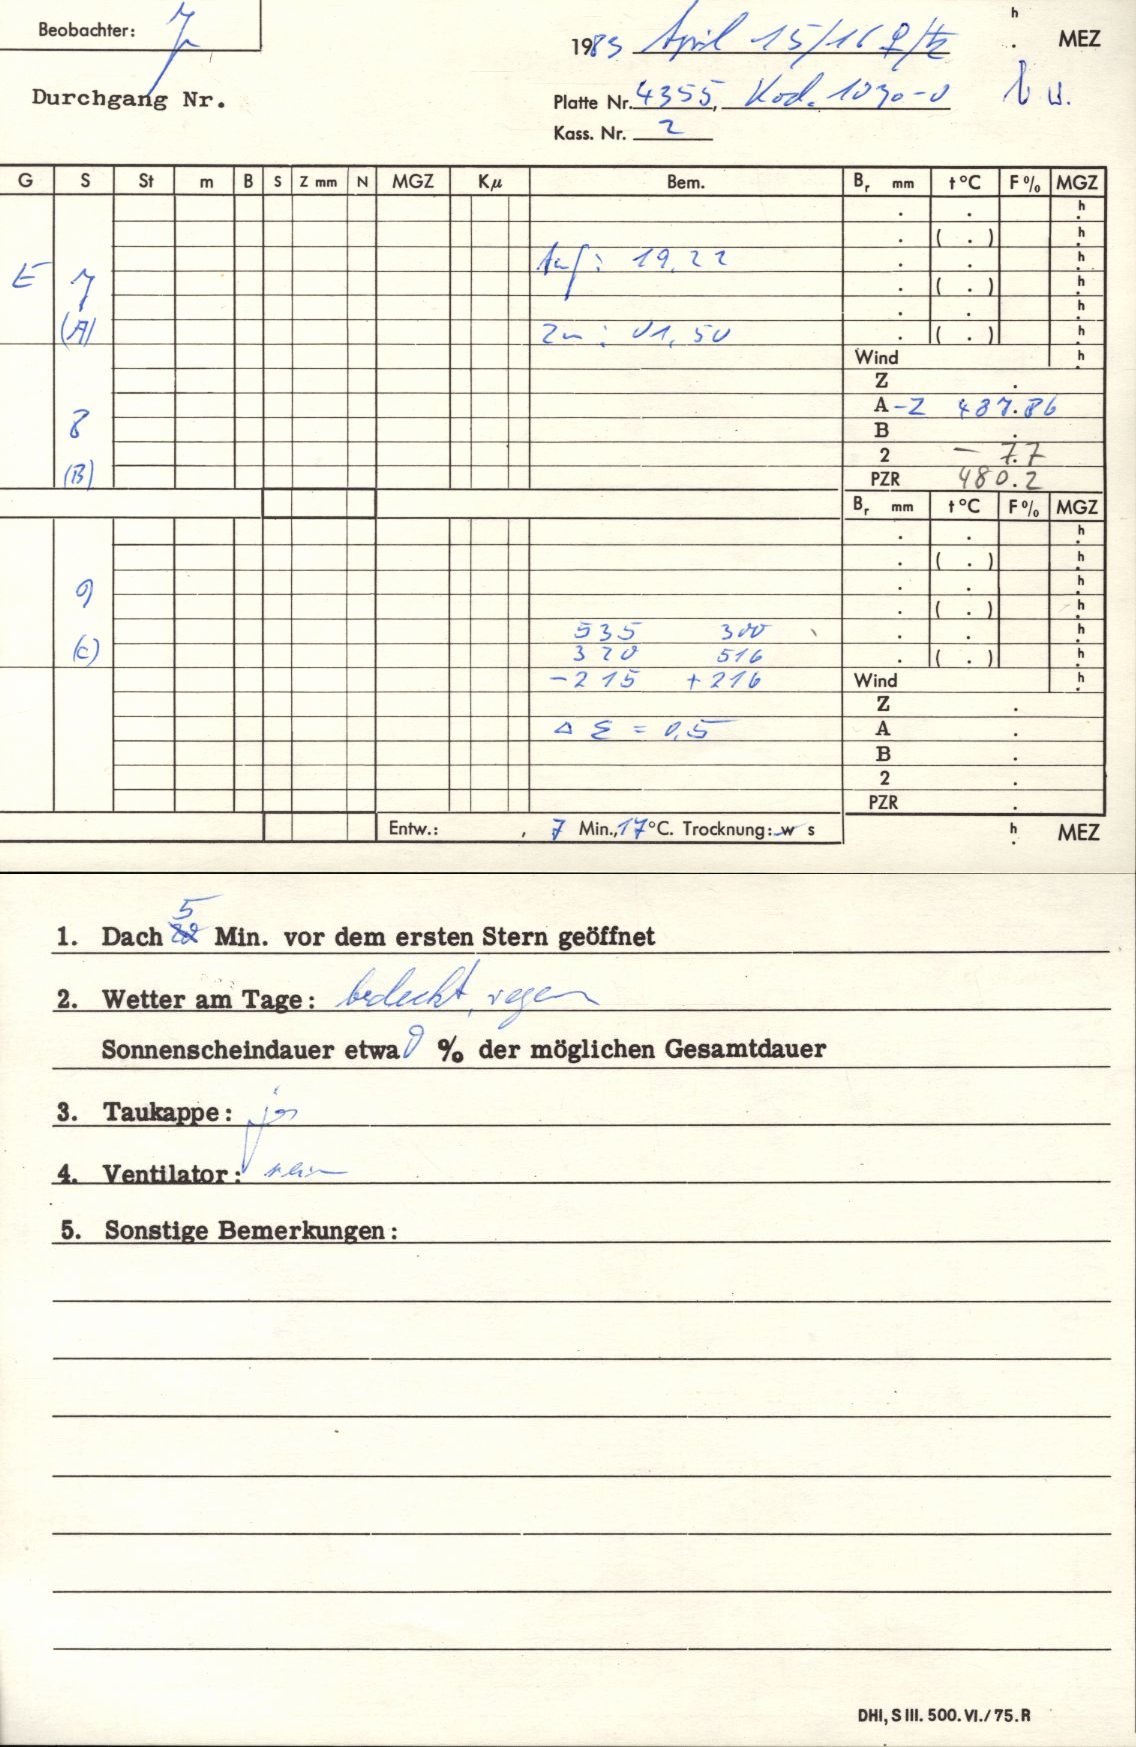 Beobachter:
h
1983 April 15/16 . MEZ
Durchgang Nr.
Platte Nr. 4355, Kod. 1030-0
Kass. Nr. 2
G S St m B S Z mm N MGZ Kµ Bem. Br mm t °C F % MGZ
. . h
. ( . ) h
Auf: 19,22 . . h
E 7 . ( . ) h
. . h
(A) Zu: 01,50 . ( . ) h
Wind h
Z .
A -Z 487.86
8 B .
2 - 7.7
(B) PZR 480.2
Br mm t °C F % MGZ
. . h
. ( . ) h
. . h
9 . ( . ) h
535 300 . . h
(C) 320 516 . ( . ) h
-215 +216 Wind h
Z .
Δ Σ = 0,5 A .
B .
2 .
PZR .
Entw.: , 7 Min., 17 °C. Trocknung: w s h . MEZ
1. Dach 5 Min. vor dem ersten Stern geöffnet
2. Wetter am Tage: bedeckt, regen
Sonnenscheindauer etwa 0 % der möglichen Gesamtdauer
3. Taukappe: ja
4. Ventilator: nein
5. Sonstige Bemerkungen:
DHI, S III. 500. VI./75. R